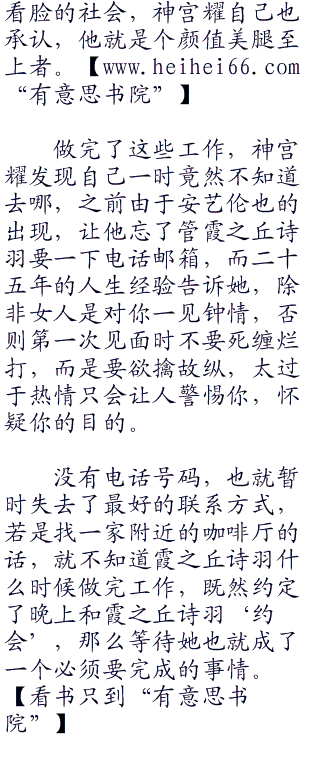 看脸的社会，神宫耀自己也
承认，他就是个颜值美腿至
上者。【www.heihei66.com
“有意思书院”】
做完了这些工作，神宫
耀发现自己一时竟然不知道
去哪，之前由于安艺伦也的
出现，让他忘了管霞之丘诗
羽要一下电话邮箱，而二十
五年的人生经验告诉她，除
非女人是对你一见钟情，否
则第一次见面时不要死缠烂
打，而是要欲擒故纵，太过
于热情只会让人警惕你，怀
疑你的目的。
没有电话号码，也就暂
时失去了最好的联系方式，
若是找一家附近的咖啡厅的
话，就不知道霞之丘诗羽什
么时候做完工作，既然约定
了晚上和霞之丘诗羽‘约
会’，那么等待她也就成了
一个必须要完成的事情。
【看书只到“有意思书
院”】